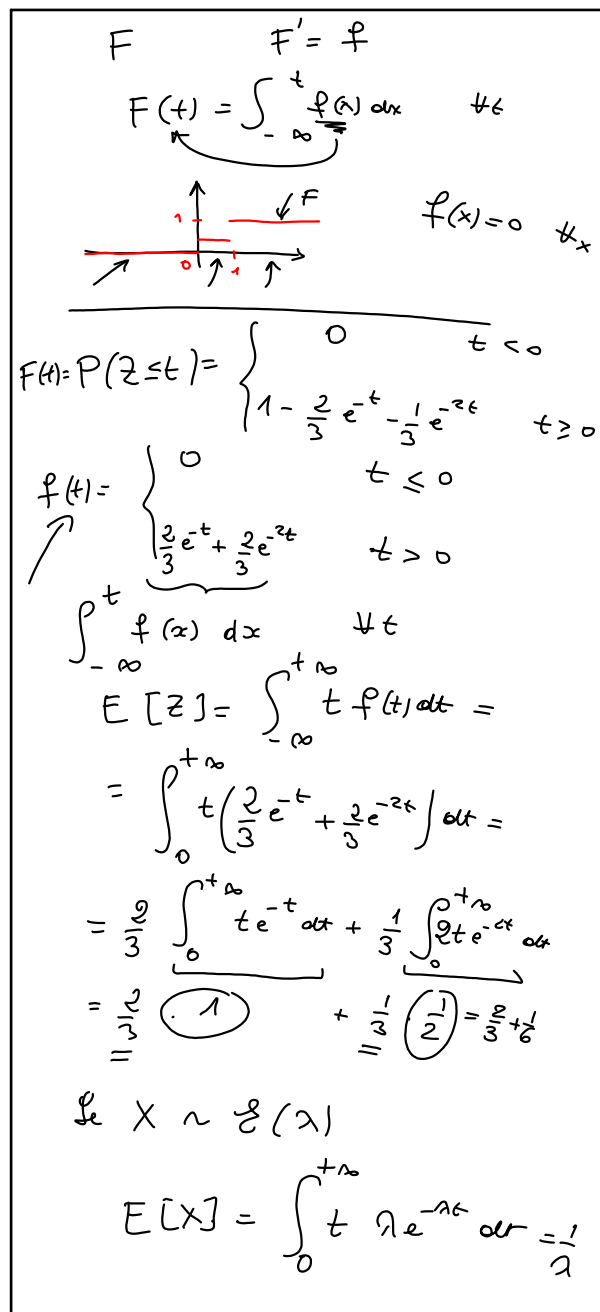 F F' = f
F(t) = ∫_{-∞}^{t} f(x) dx ∀t
1 F
f(x) = 0 ∀x
0 1
F(t) = P(Z ≤ t) = { 0 t < 0
1 - 2/3 e^{-t} - 1/3 e^{-2t} t ≥ 0
f(t) = { 0 t ≤ 0
2/3 e^{-t} + 2/3 e^{-2t} t > 0
∫_{-∞}^{t} f(x) dx ∀t
E[Z] = ∫_{-∞}^{+∞} t f(t) dt =
= ∫_{0}^{+∞} t (2/3 e^{-t} + 2/3 e^{-2t}) dt =
= 2/3 ∫_{0}^{+∞} t e^{-t} dt + 1/3 ∫_{0}^{+∞} 2t e^{-2t} dt
= 2/3 · 1 + 1/3 · 1/2 = 2/3 + 1/6
Se X ~ ℰ(λ)
E[X] = ∫_{0}^{+∞} t λ e^{-λt} dt = 1/λ